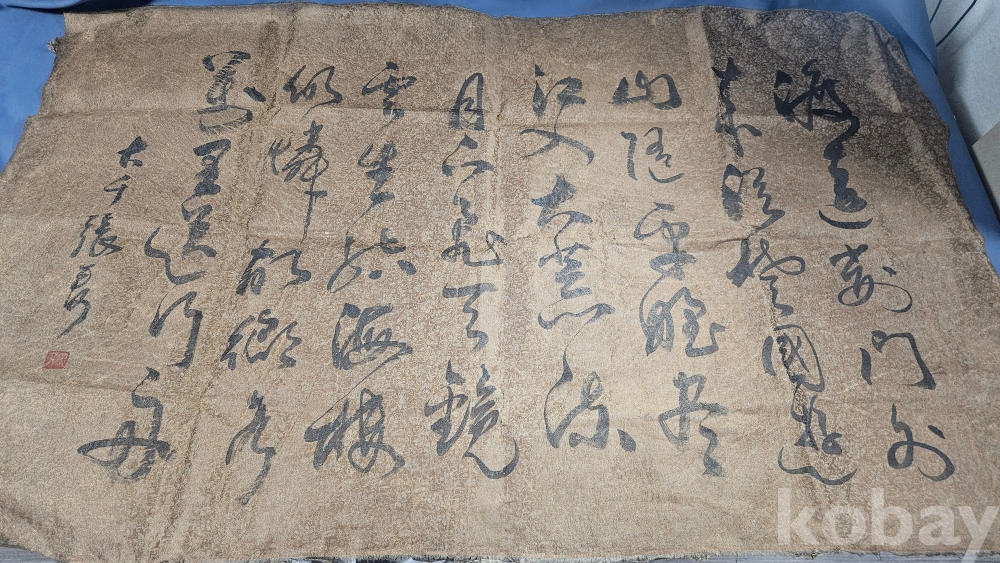 渡遠荊門外
來從楚國遊
山隨平野盡
江入大荒流
月下飛天鏡
雲生結海樓
仍憐故鄉水
萬里送行舟
大千張爰
kobay